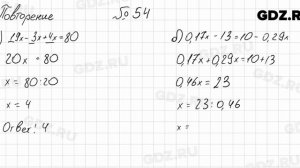 GDZ.RU
Повторение № 54
) 19x - 3x + 4x = 80
20x = 80
x = 80:20
x = 4
Ответ: 4
б) 0,17x - 13 = 10 - 0,29x
0,17x + 0,29x = 10 + 13
0,46x = 23
x = 23 : 0,46
x =